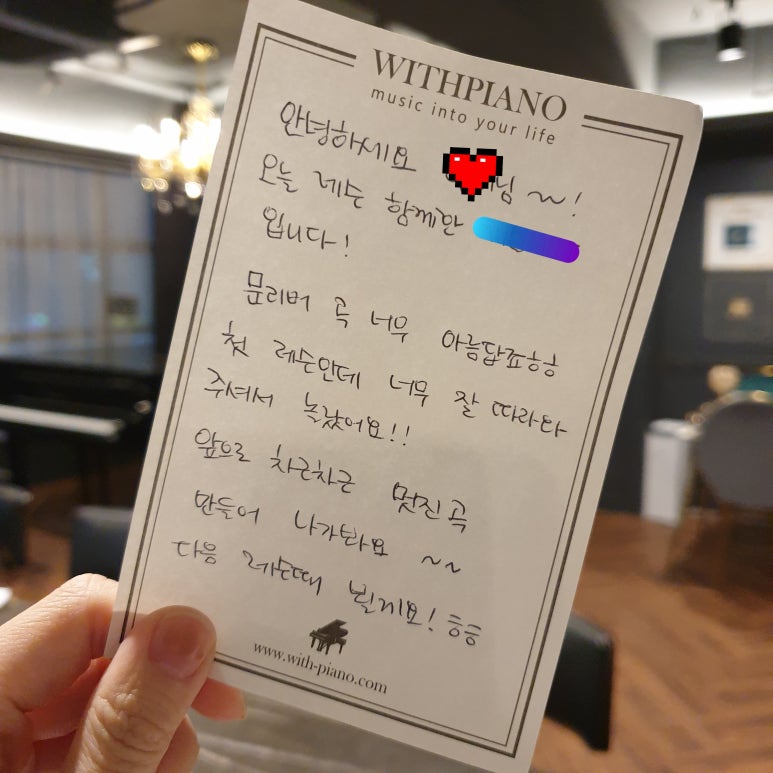 WITHPIANO
music into your life
안녕하세요 님 ~!
오늘 레슨 함께한
입니다!
문리버 곡 너무 아름답죠ㅎㅎ
첫 레슨인데 너무 잘 따라와
주셔서 놀랐어요!!
앞으로 차근차근 멋진 곡
만들어 나가봐요 ~~
다음 레슨때 뵐게요! ㅎㅎ
www.with-piano.com